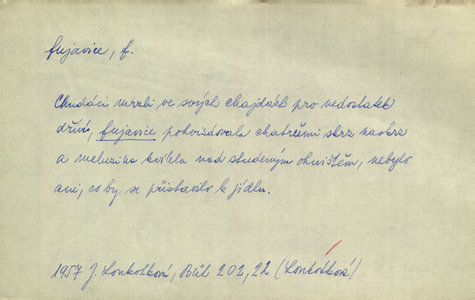 fujavice, f.
Chudáci mrzli ve svých chajdách pro nedostatek
dříví, fujavice pohvizdovala chatrčemi skrz naskrz
a meluzina kvílela nad studeným ohništěm, nebylo
ani, co by se přistavilo k jídlu.
1957 J. Loukotková, Búh 202, 22 (Loukotková)